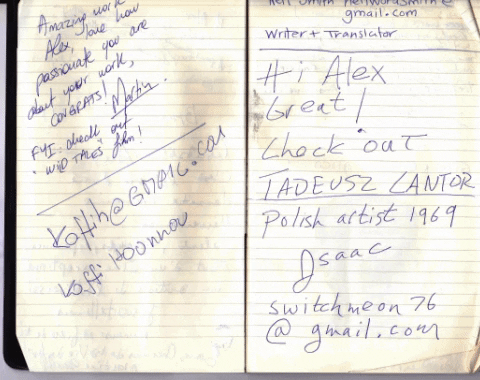 Amazing work
Alex, love how
passionate you are
about your work,
CONGRATS! Martin.
FYI: check out
"WILD TALES" film!
Koffih@GMAIL.com
Koffi Hoonnou
Neil Smith neilwordsmith@
gmail.com
Writer + Translator
Hi Alex
Great!
Check out
TADEUSZ CANTOR
Polish artist 1969
Isaac
switchmeon76
@gmail.com